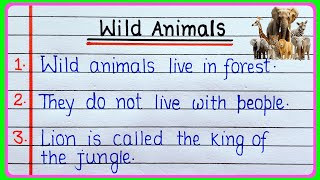 Wild Animals
1. Wild animals live in forest.
2. They do not live with people.
3. Lion is called the king of
the jungle.